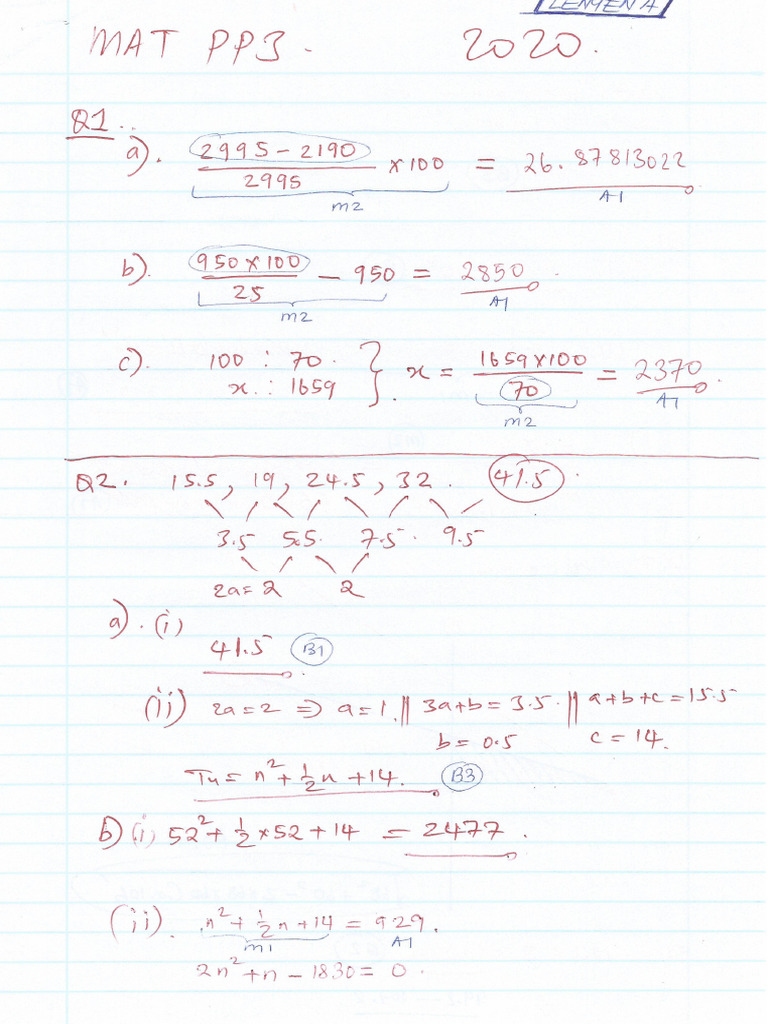 LENYENA
MAT PP3. 2020.
Q1.
a). (2995 - 2190)/2995 × 100 = 26.87813022
M2 A1
b). (950 × 100)/25 - 950 = 2850.
M2 A1
c). 100 : 70. } x = (1659 × 100)/70 = 2370.
x : 1659
M2 A1
Q2. 15.5, 19, 24.5, 32. 41.5.
3.5 5.5. 7.5. 9.5
2a = 2 2
a). (i)
41.5 B1
(ii) 2a = 2 ⇒ a = 1. || 3a+b = 3.5. || a+b+c = 15.5
b = 0.5 c = 14.
Tn = n² + ½n + 14. B3
b) (i) 52² + ½ × 52 + 14 = 2477.
(ii). n² + ½n + 14 = 929.
M1 A1
2n² + n - 1830 = 0.